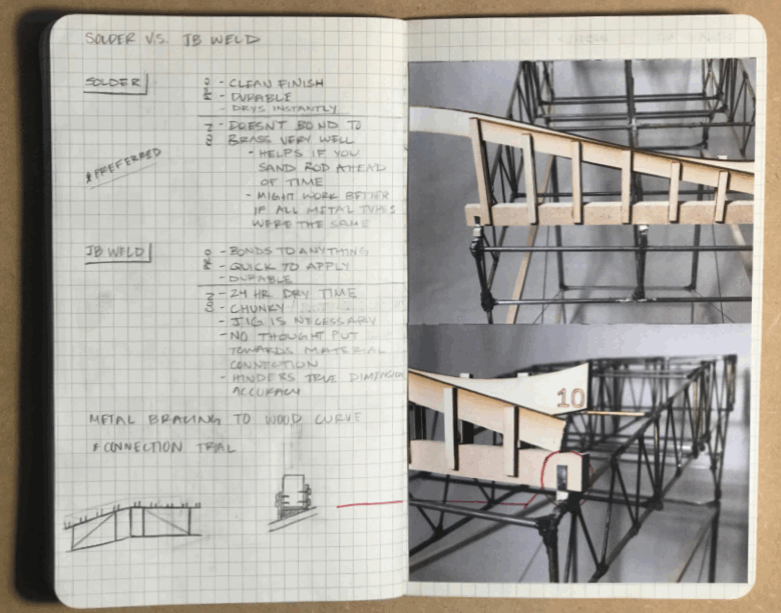 SOLDER V.S. JB WELD
SOLDER
PRO
- CLEAN FINISH
- DURABLE
- DRYS INSTANTLY
CON
- DOESNT BOND TO
BRASS VERY WELL
- HELPS IF YOU
SAND ROD AHEAD
OF TIME
- MIGHT WORK BETTER
IF ALL METAL TYPES
WERE THE SAME
* PREFERRED
JB WELD
PRO
- BONDS TO ANYTHING
- QUICK TO APPLY
- DURABLE
CON
- 24 HR DRY TIME
- CHUNKY
- JIG IS NECESSARY
- NO THOUGHT PUT
TOWARDS MATERIAL
CONNECTION
- HINDERS TRUE DIMENSION
ACCURACY
METAL BRACING TO WOOD CURVE
* CONNECTION TRIAL
10